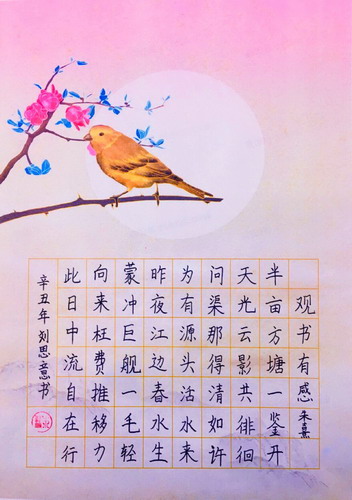 观书有感 朱熹
半亩方塘一鉴开
天光云影共徘徊
问渠那得清如许
为有源头活水来
昨夜江边春水生
蒙冲巨舰一毛轻
向来枉费推移力
此日中流自在行
辛丑年刘思意书